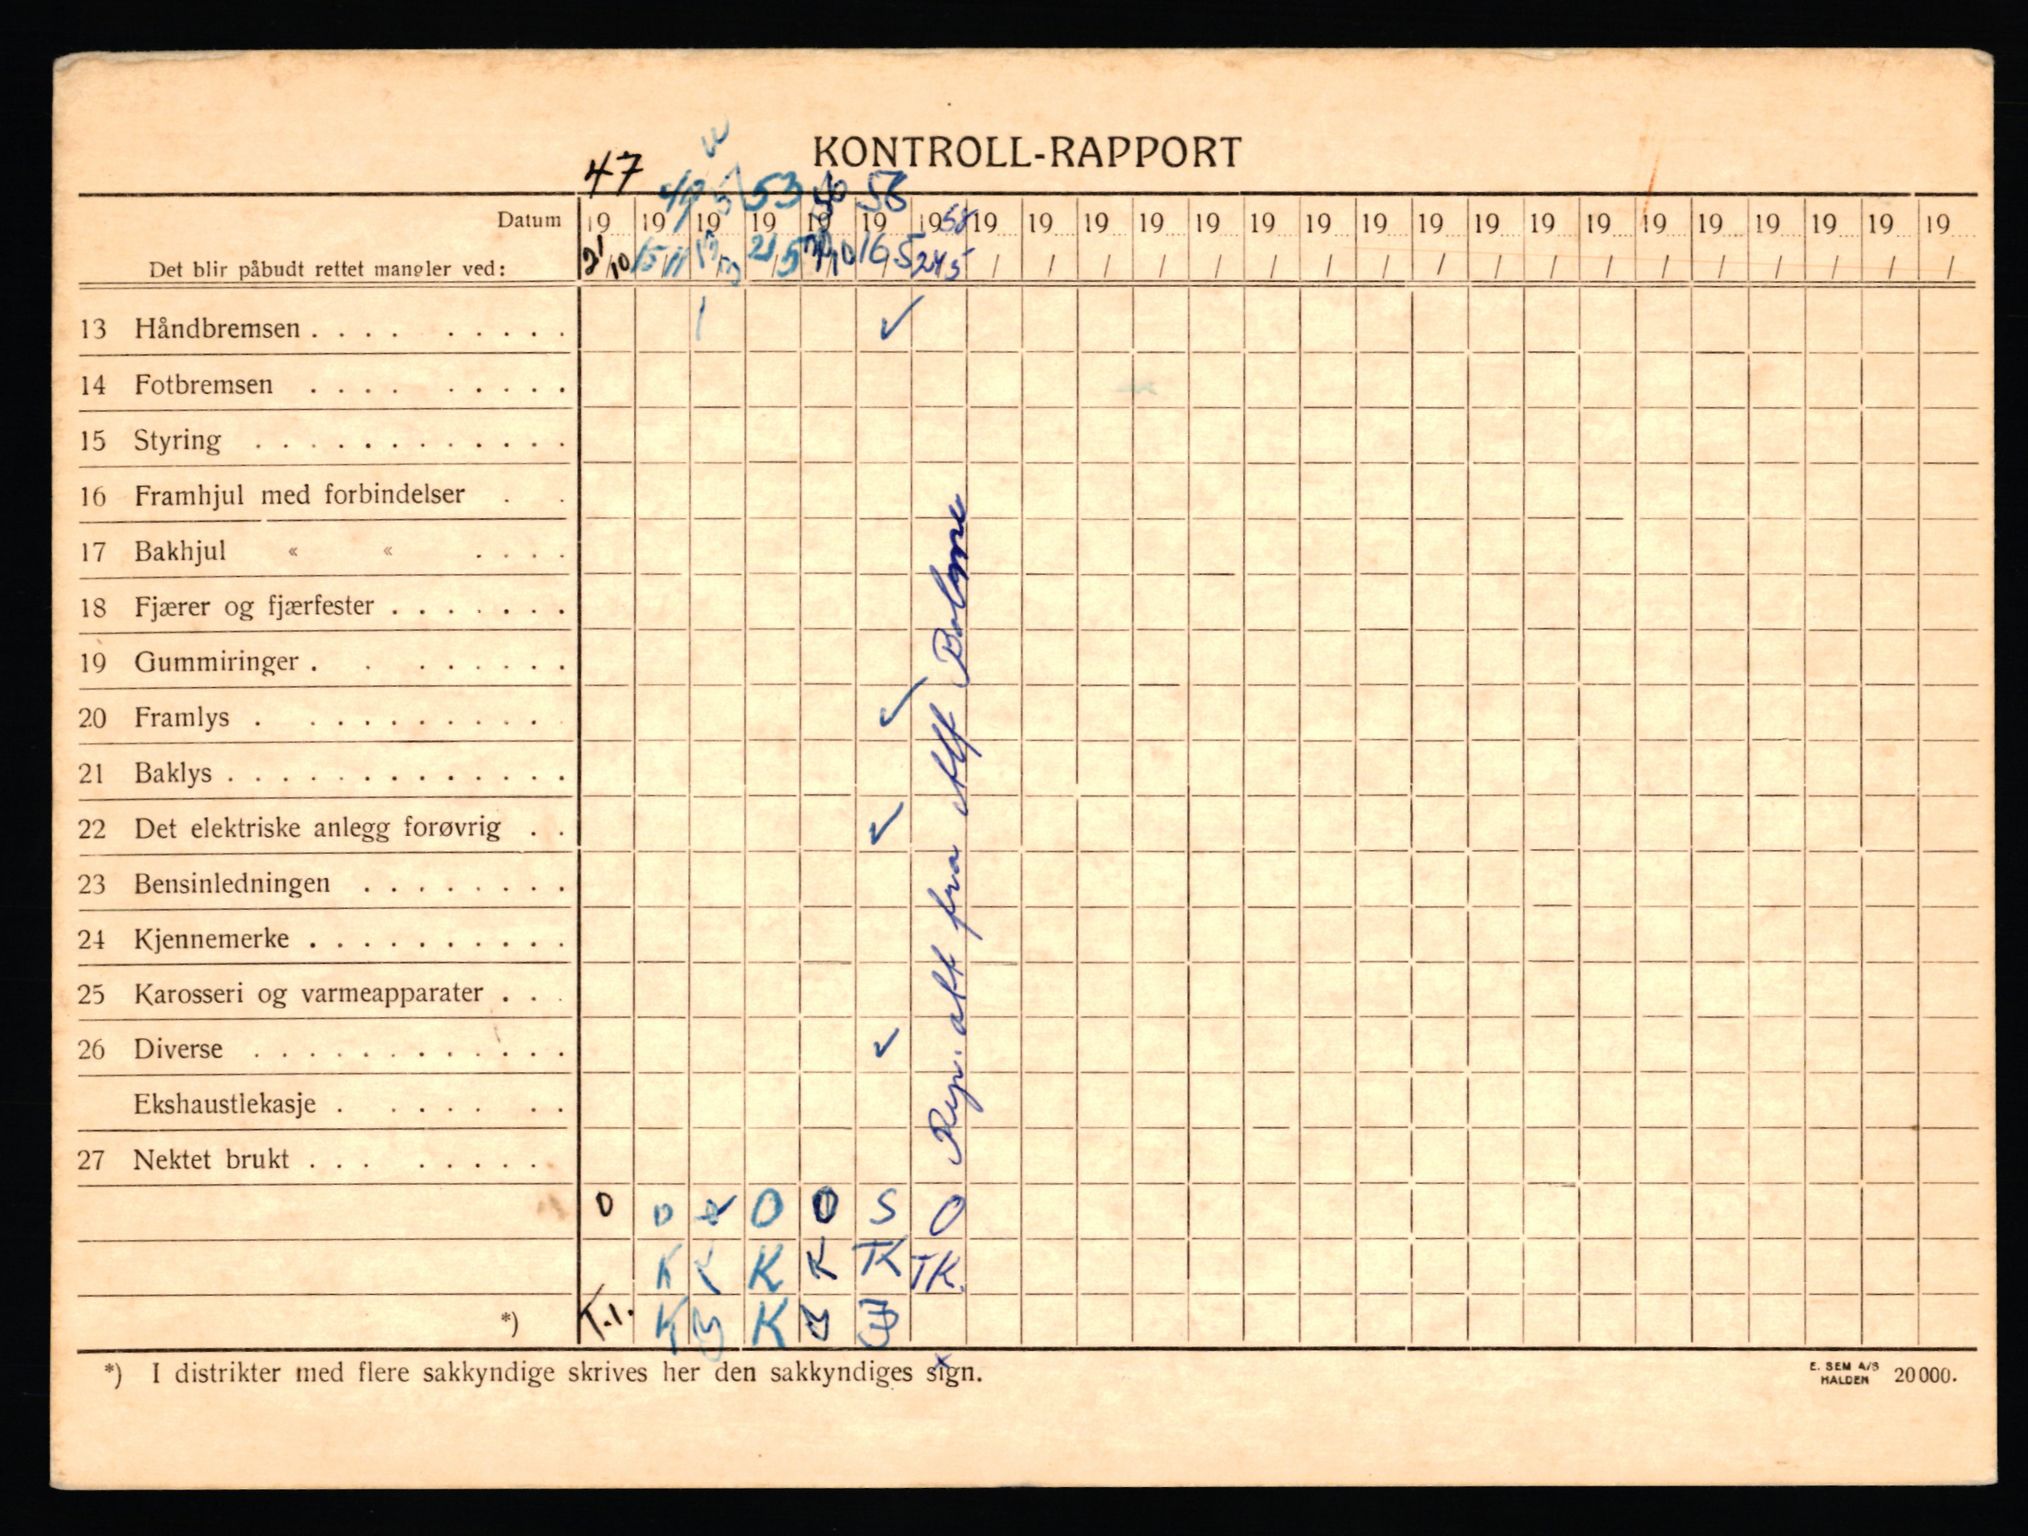 KONTROLL-RAPPORT
47 49 51 53 56 58
Datum 19 19 19 19 19 19 19 19 19 19 19 19 19 19 19 19 19 19 19 19 19 19 19 19 19
Det blir påbudt rettet mangler ved: 21/10 15/11 21/5 16/5 24/5 / / / / / / / / / / / / / / / / / /
13 Håndbremsen . . . . . . . . . / ✓
14 Fotbremsen . . . . . . . . .
15 Styring . . . . . . . . . . . .
16 Framhjul med forbindelser . .
17 Bakhjul « « . . . .
18 Fjærer og fjærfester . . . . . . .
19 Gummiringer . . . . . . . .
20 Framlys . . . . . . . . . . ✓
21 Baklys . . . . . . . . . . . . .
22 Det elektriske anlegg forøvrig . . ✓
23 Bensinledningen . . . . . . . .
24 Kjennemerke . . . . . . . . . .
25 Karosseri og varmeapparater . . .
26 Diverse . . . . . . . . . . . . ✓
Ekshaustlekasje . . . . . . .
27 Nektet brukt . . . . . . . .
Rep. att fra Alf Bolme
O O O O S O
K K K K TK TK.
*) K.I. K K
*) I distrikter med flere sakkyndige skrives her den sakkyndiges sign.
E. SEM A/S
HALDEN 20000.